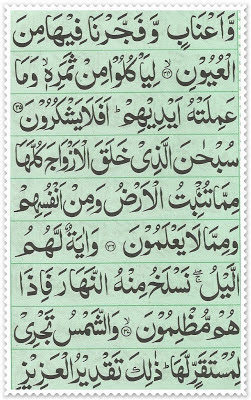 وَّاَعْنَابٍ وَّفَجَّرْنَا فِيْهَا مِنَ
الْعُيُوْنِ ﴿۳۴﴾ لِيَاْكُلُوْا مِنْ ثَمَرِهٖ ۙ وَمَا
عَمِلَتْهُ اَيْدِيْهِمْ ؕ اَفَلَا يَشْكُرُوْنَ ﴿۳۵﴾
سُبْحٰنَ الَّذِىْ خَلَقَ الْاَزْوَاجَ كُلَّهَا
مِمَّا تُنْۢبِتُ الْاَرْضُ وَمِنْ اَنْفُسِهِمْ
وَمِمَّا لَا يَعْلَمُوْنَ ﴿۳۶﴾ وَاٰيَةٌ لَّهُمُ
الَّيْلُ ۖۚ نَسْلَخُ مِنْهُ النَّهَارَ فَاِذَا
هُمْ مُّظْلِمُوْنَ ﴿۳۷﴾ وَالشَّمْسُ تَجْرِىْ
لِمُسْتَقَرٍّ لَّهَا ؕ ذٰلِكَ تَقْدِيْرُ الْعَزِيْزِ